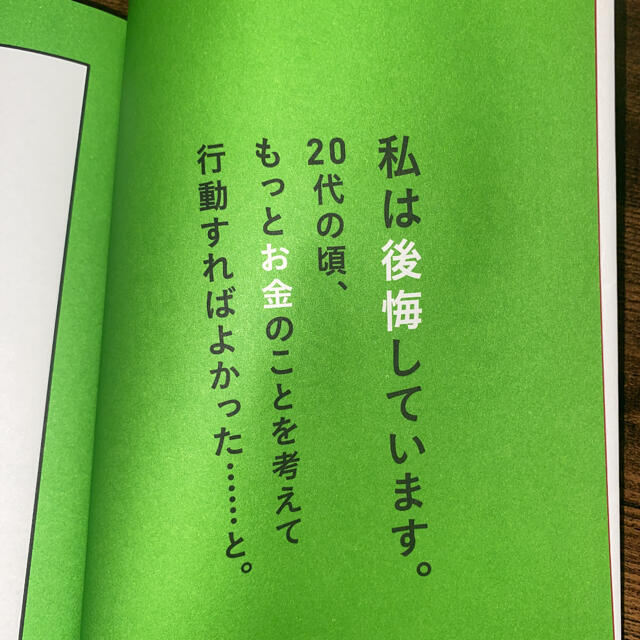 私は後悔しています。
20代の頃、
もっとお金のことを考えて
行動すればよかった……と。